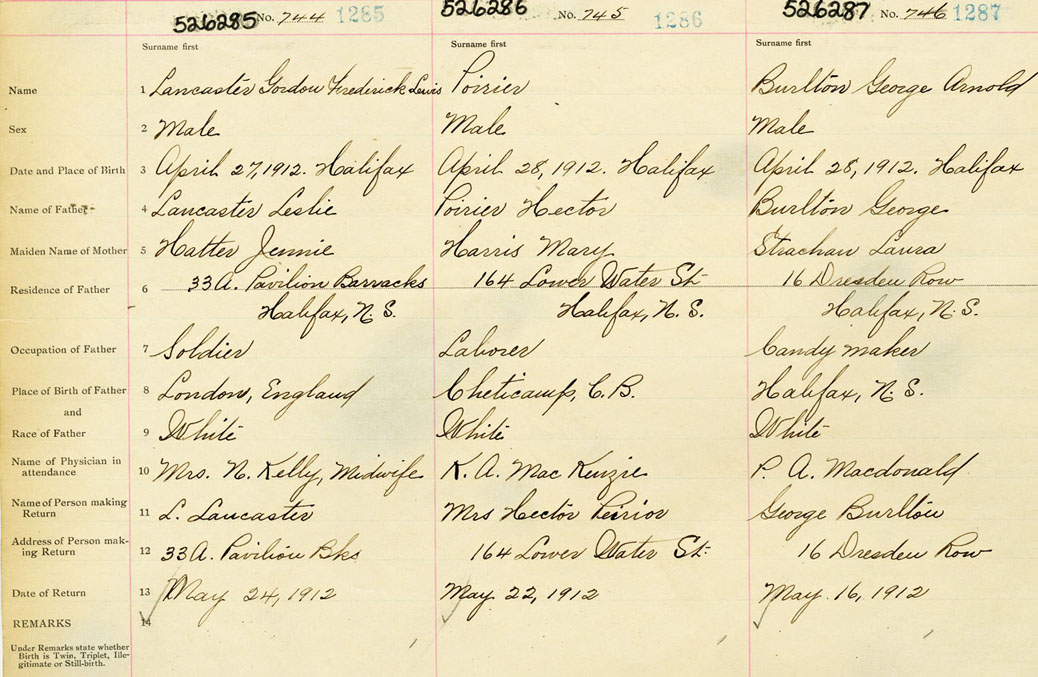 526285 No. 744 1285 526286 No. 745 1286 526287 No. 746 1287
Surname first Surname first Surname first
Name 1 Lancaster Gordon Frederick Lewis Poirier Burlton George Arnold
Sex 2 Male Male Male
Date and Place of Birth 3 April 27, 1912. Halifax April 28, 1912. Halifax April 28, 1912. Halifax
Name of Father 4 Lancaster Leslie Poirier Hector Burlton George
Maiden Name of Mother 5 Hatter Jennie Harris Mary Strachan Laura
Residence of Father 6 33A. Pavilion Barracks 164 Lower Water St. 16 Dresden Row
Halifax, N.S. Halifax, N.S. Halifax, N.S.
Occupation of Father 7 Soldier Laborer Candy maker
Place of Birth of Father 8 London, England Cheticamp, C.B. Halifax, N.S.
and
Race of Father 9 White White White
Name of Physician in
attendance 10 Mrs. N. Kelly, Midwife K. A. Mac Kenzie P. A. Macdonald
Name of Person making
Return 11 L. Lancaster Mrs Hector Peirior George Burlton
Address of Person mak-
ing Return 12 33A. Pavilion Bks 164 Lower Water St. 16 Dresden Row
Date of Return 13 May 24, 1912 May 22, 1912 May 16, 1912
REMARKS 14
Under Remarks state whether
Birth is Twin, Triplet, Ille-
gitimate or Still-birth.